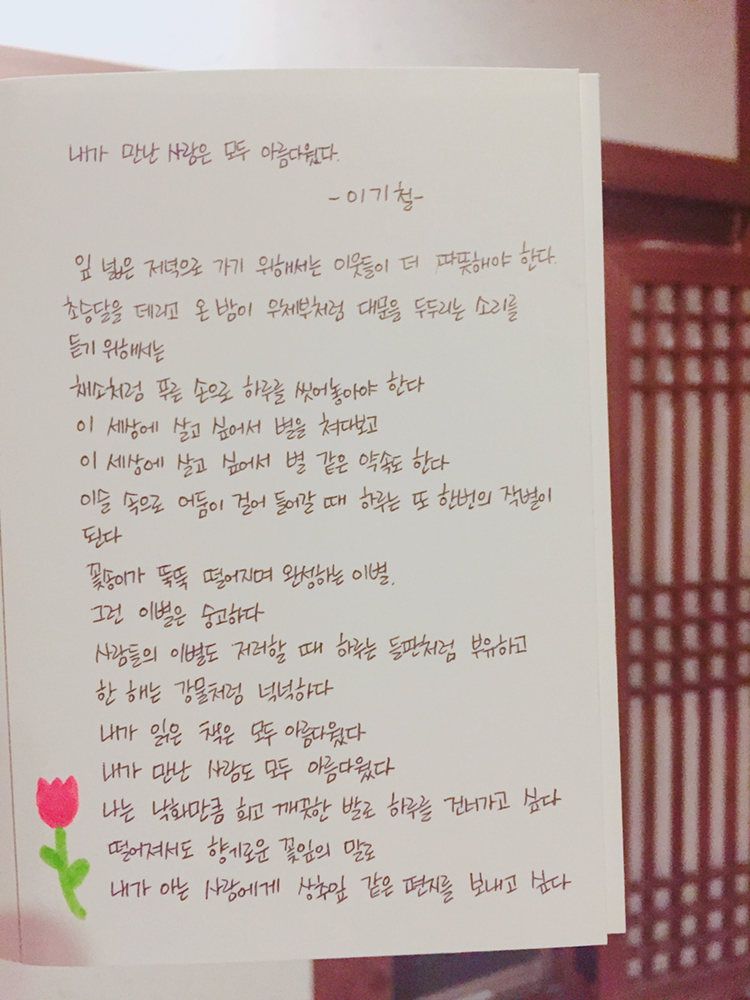 내가 만난 사람은 모두 아름다웠다.
-이기철-
잎 넓은 저녁으로 가기 위해서는 이웃들이 더 따뜻해야 한다.
초승달을 데리고 온 밤이 우체부처럼 대문을 두두리는 소리를
듣기 위해서는
채소처럼 푸른 손으로 하루를 씻어놓아야 한다
이 세상에 살고 싶어서 별을 쳐다보고
이 세상에 살고 싶어서 별 같은 약속도 한다
이슬 속으로 어둠이 걸어 들어갈 때 하루는 또 한번의 작별이
된다
꽃송이가 뚝뚝 떨어지며 완성하는 이별.
그런 이별은 숭고하다
사람들의 이별도 저러할 때 하루는 들판처럼 부유하고
한 해는 강물처럼 넉넉하다
내가 읽은 책은 모두 아름다웠다
내가 만난 사람도 모두 아름다웠다
나는 낙화만큼 희고 깨끗한 발로 하루를 건너가고 싶다
떨어져서도 향기로운 꽃잎의 말로
내가 아는 사람에게 상추잎 같은 편지를 보내고 싶다